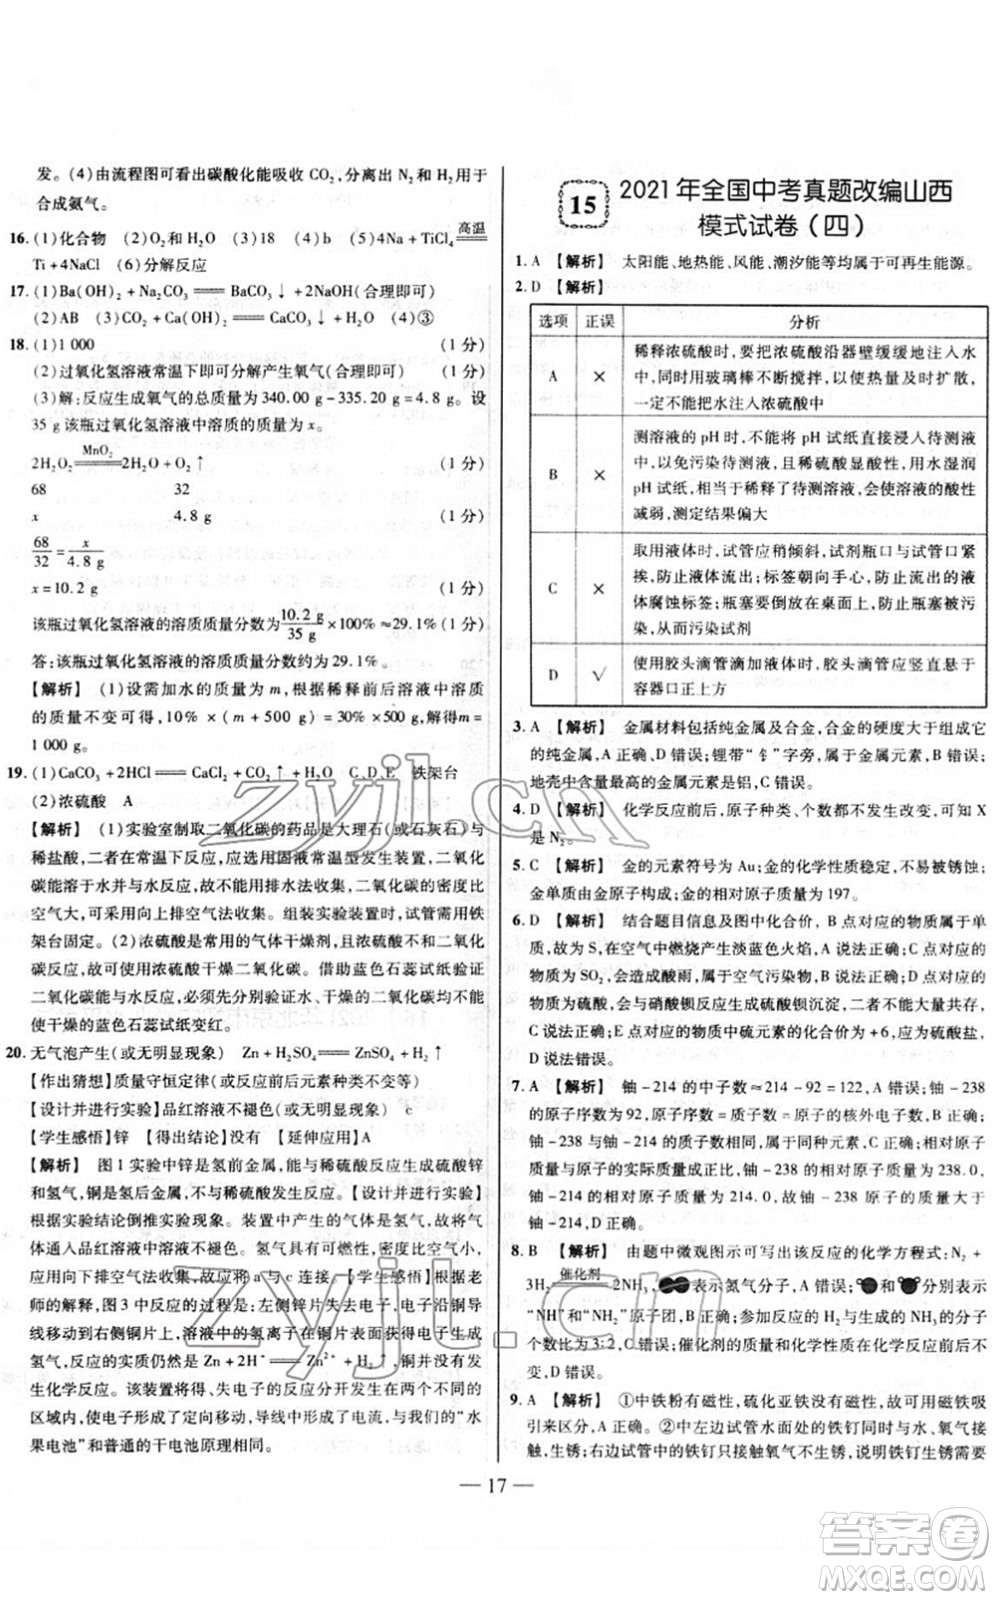 发。(4)由流程图可看出碳酸化能吸收 CO₂，分离出 N₂ 和 H₂ 用于
合成氨气。
16. (1)化合物 (2)O₂和 H₂O (3)18 (4)b (5)4Na + TiCl₄ ══高温══
Ti + 4NaCl (6)分解反应
17. (1)Ba(OH)₂ + Na₂CO₃ ══ BaCO₃↓ + 2NaOH(合理即可)
(2)AB (3)CO₂ + Ca(OH)₂ ══ CaCO₃↓ + H₂O (4)③
18. (1)1 000 (1 分)
(2)过氧化氢溶液常温下即可分解产生氧气(合理即可) (1 分)
(3)解：反应生成氧气的总质量为 340.00 g - 335.20 g = 4.8 g。设
35 g 该瓶过氧化氢溶液中溶质的质量为 x。
2H₂O₂ ══MnO₂══ 2H₂O + O₂↑ (1 分)
68 32
x 4.8 g (1 分)
68/32 = x/4.8 g
x = 10.2 g (1 分)
该瓶过氧化氢溶液的溶质质量分数为 10.2 g/35 g × 100% ≈ 29.1% (1 分)
答：该瓶过氧化氢溶液的溶质质量分数约为 29.1%。
【解析】 (1)设需加水的质量为 m，根据稀释前后溶液中溶质的
质量不变可得，10% × (m + 500 g) = 30% × 500 g，解得 m =
1 000 g。
19. (1)CaCO₃ + 2HCl ══ CaCl₂ + CO₂↑ + H₂O C、D、E 铁架台
(2)浓硫酸 A
【解析】 (1)实验室制取二氧化碳的药品是大理石(或石灰石)与
稀盐酸，二者在常温下反应，应选用固液常温型发生装置，二氧化
碳能溶于水并与水反应，必须用排空气法收集。二氧化碳的密度比
空气大，可用向上排空气法收集。组装实验装置时，试管需用铁
架台固定。(2)浓硫酸是常用的气体干燥剂，且不与二氧化
碳反应，故用浓硫酸干燥二氧化碳。借助蓝色石蕊试纸验证
二氧化碳能与水反应，必须先分别验证水、干燥的二氧化碳不
能使干燥的蓝色石蕊试纸变红。
20. 无气泡产生(或无明显现象) Zn + H₂SO₄ ══ ZnSO₄ + H₂↑
【作出猜想】质量守恒定律(或反应前后元素种类不变等)
【设计并进行实验】品红溶液不褪色(或无明显现象) c
【学生感悟】锌 【得出结论】没有 【延伸应用】A
【解析】 图 1 实验中锌是氢前金属，能与稀硫酸反应生成硫酸锌
和氢气，铜是氢后金属，不与稀硫酸发生反应。【设计并进行实验】
根据实验结论倒推实验现象。装置中产生的气体是氢气，故将
气体通入品红溶液中溶液不褪色。氢气具有可燃性，密度比空气
小，可用向下排空气法收集，故应将 a 与 c 连接。【学生感悟】根据老
师的解释，图 3 中反应的过程是：左侧锌片失去电子，电子沿铜导
线移动到右侧铜片上，溶液中的氢离子在铜片上获得电子生成
氢气，反应的实质仍然是 Zn + 2H⁺ ══ Zn²⁺ + H₂↑，铜并没有发
生反应。该装置将得、失电子的反应分开发生在两个不同的区
域，使电子产生了定向移动，导线中形成了电流，与我们的“水
果电池”和普通的干电池原理相同。
15 2021 年全国中考真题改编山西
模式试卷（四）
1. A 【解析】 太阳能、地热能、风能、潮汐能等均属于可再生能源。
2. D 【解析】
选项 正误 分析
A × 稀释浓硫酸时，要把浓硫酸沿器壁缓缓地注入水
中，同时用玻璃棒不断搅拌，以使热量及时扩散，
一定不能把水注入浓硫酸中
B × 测溶液的 pH 时，不能将 pH 试纸直接浸入待测液
中，以免污染待测液，且稀硫酸显酸性，用水湿润
pH 试纸，相当于稀释了待测溶液，会使溶液的酸性
减弱，测定结果偏大
C × 取用液体时，试管应稍倾斜，试剂瓶口与试管口紧
挨，防止液体流出；标签朝向手心，防止流出的液
体腐蚀标签；瓶塞要倒放在桌面上，防止瓶塞被污
染，从而污染试剂
D √ 使用胶头滴管滴加液体时，胶头滴管应竖直悬于
容器口正上方
3. A 【解析】 金属材料包括纯金属及合金，合金的硬度大于组成它
的纯金属，A 正确，D 错误；锂带“钅”字旁，属于金属元素，B 错误；
地壳中含量最高的金属元素是铝，C 错误。
4. D 【解析】 化学反应前后，原子种类、个数都不发生改变，可知 X
是 N₂。
5. C 【解析】 金的元素符号为 Au；金的化学性质稳定，不易被锈蚀；
金单质由金原子构成；金的相对原子质量为 197。
6. D 【解析】 结合题目信息及图中化合价，B 点对应的物质属于单
质，故为 S，在空气中燃烧产生淡蓝色火焰，A 说法正确；C 点对应的
物质为 SO₂，会形成酸雨，属于空气污染物，B 说法正确；D 点对应的
物质为硫酸，会与钡离子反应产生硫酸钡沉淀，二者不能大量共存，
C 说法正确；E 点对应的物质中硫元素的化合价为 +6，应为硫酸盐，
D 说法错误。
7. A 【解析】 铀 - 214 的中子数 ≈ 214 - 92 = 122，A 错误；铀 - 238
的原子序数为 92，原子序数 = 质子数 = 原子的核外电子数，B 正确；
铀 - 238 与铀 - 214 的质子数相同，均属于铀元素，C 正确；相对
原子质量与原子的实际质量成正比，铀 - 238 的相对原子质量为 238.0，
铀 - 214 的相对原子质量为 214.0，故铀 - 238 的原子质量大于
铀 - 214，D 正确。
8. B 【解析】 由题中微观图示可写出该反应的化学方程式：N₂ +
3H₂ ══催化剂══ 2NH₃，表示氮气分子，A 错误；与分别表示
“NH”和“NH₂”原子团，B 正确；参加反应的 H₂ 与生成的 NH₃ 的分子
个数比为 3∶2，C 错误；催化剂的质量和化学性质在反应前后
不变，D 错误。
9. A 【解析】 ①中铁粉有磁性，硫化亚铁没有磁性，故可用磁铁吸
引来区分，A 正确。②中左边试管水面处的铁钉同时与水、氧气接
触，生锈；右边试管中的铁钉只接触氧气不生锈，说明铁钉生锈需要
— 17 —
zyjl.cn
zyjl.cn
答案圈
MXQE.COM